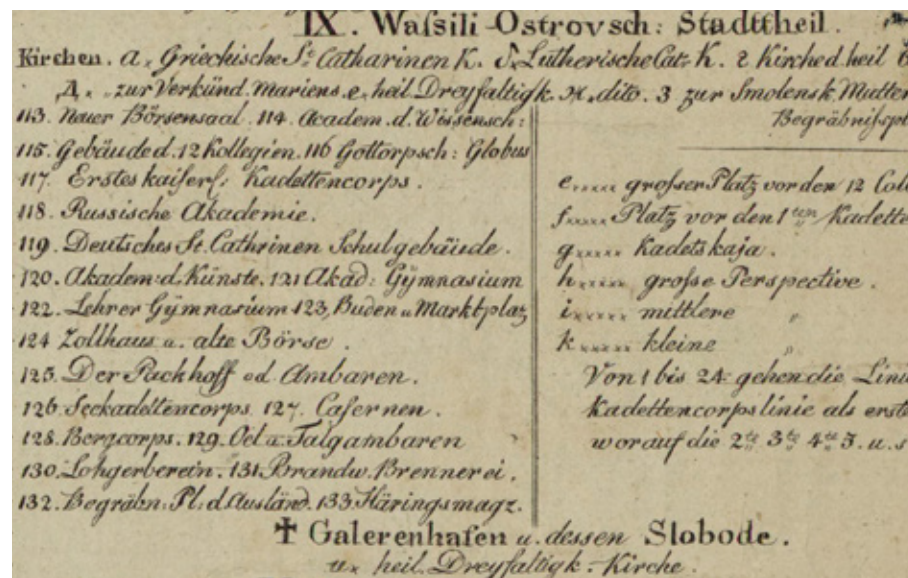 IX. Waſsili-Ostrovsch: Stadttheil.
Kirchen. a. Griechische St. Catharinen K. Lutherische Cat: K. Kirche d. heil
zur Verkünd. Mariens. e. heil. Dreyfaltigk. dito. 3 zur Smolensk. Mutter
113. Neuer Börsensaal. 114. Academ. d. Wissensch:
Begräbniſspl
115. Gebäude d. 12 Kollegien. 116 Gottorpsch: Globus
117. Erstes kaiserl: Kadettencorps.
118. Russische Akademie.
119. Deutsches St. Cathrinen Schulgebäude.
120. Akadem: d. Künste. 121 Akad: Gÿmnasium
122. Lehrer Gÿmnasium 123, Buden u. Marktplaz
124 Zollhaus u. alte Börse.
125. Der Packhoff od. Ambaren.
126. Seekadettencorps. 127. Casernen.
128. Bergcorps. 129. Oel u. Talgambaren
130. Lohgerberein. 131. Brandw. Brennerei.
132. Begräbn: Pl: d. Ausländ. 133 Häringsmagz.
e..... groſser Platz vor den 12 Col
f..... Platz vor den 1ten Kadette
g..... Kadetskaja.
h..... groſse Perspective.
i...... mittlere "
k..... kleine "
Von 1 bis 24 gehen die Lini
Kadettencorpslinie als erste
worauf die 2te 3te 4te 5. u. s
✝ Galerenhafen u. dessen Slobode.
heil. Dreyfaltigk. Kirche.